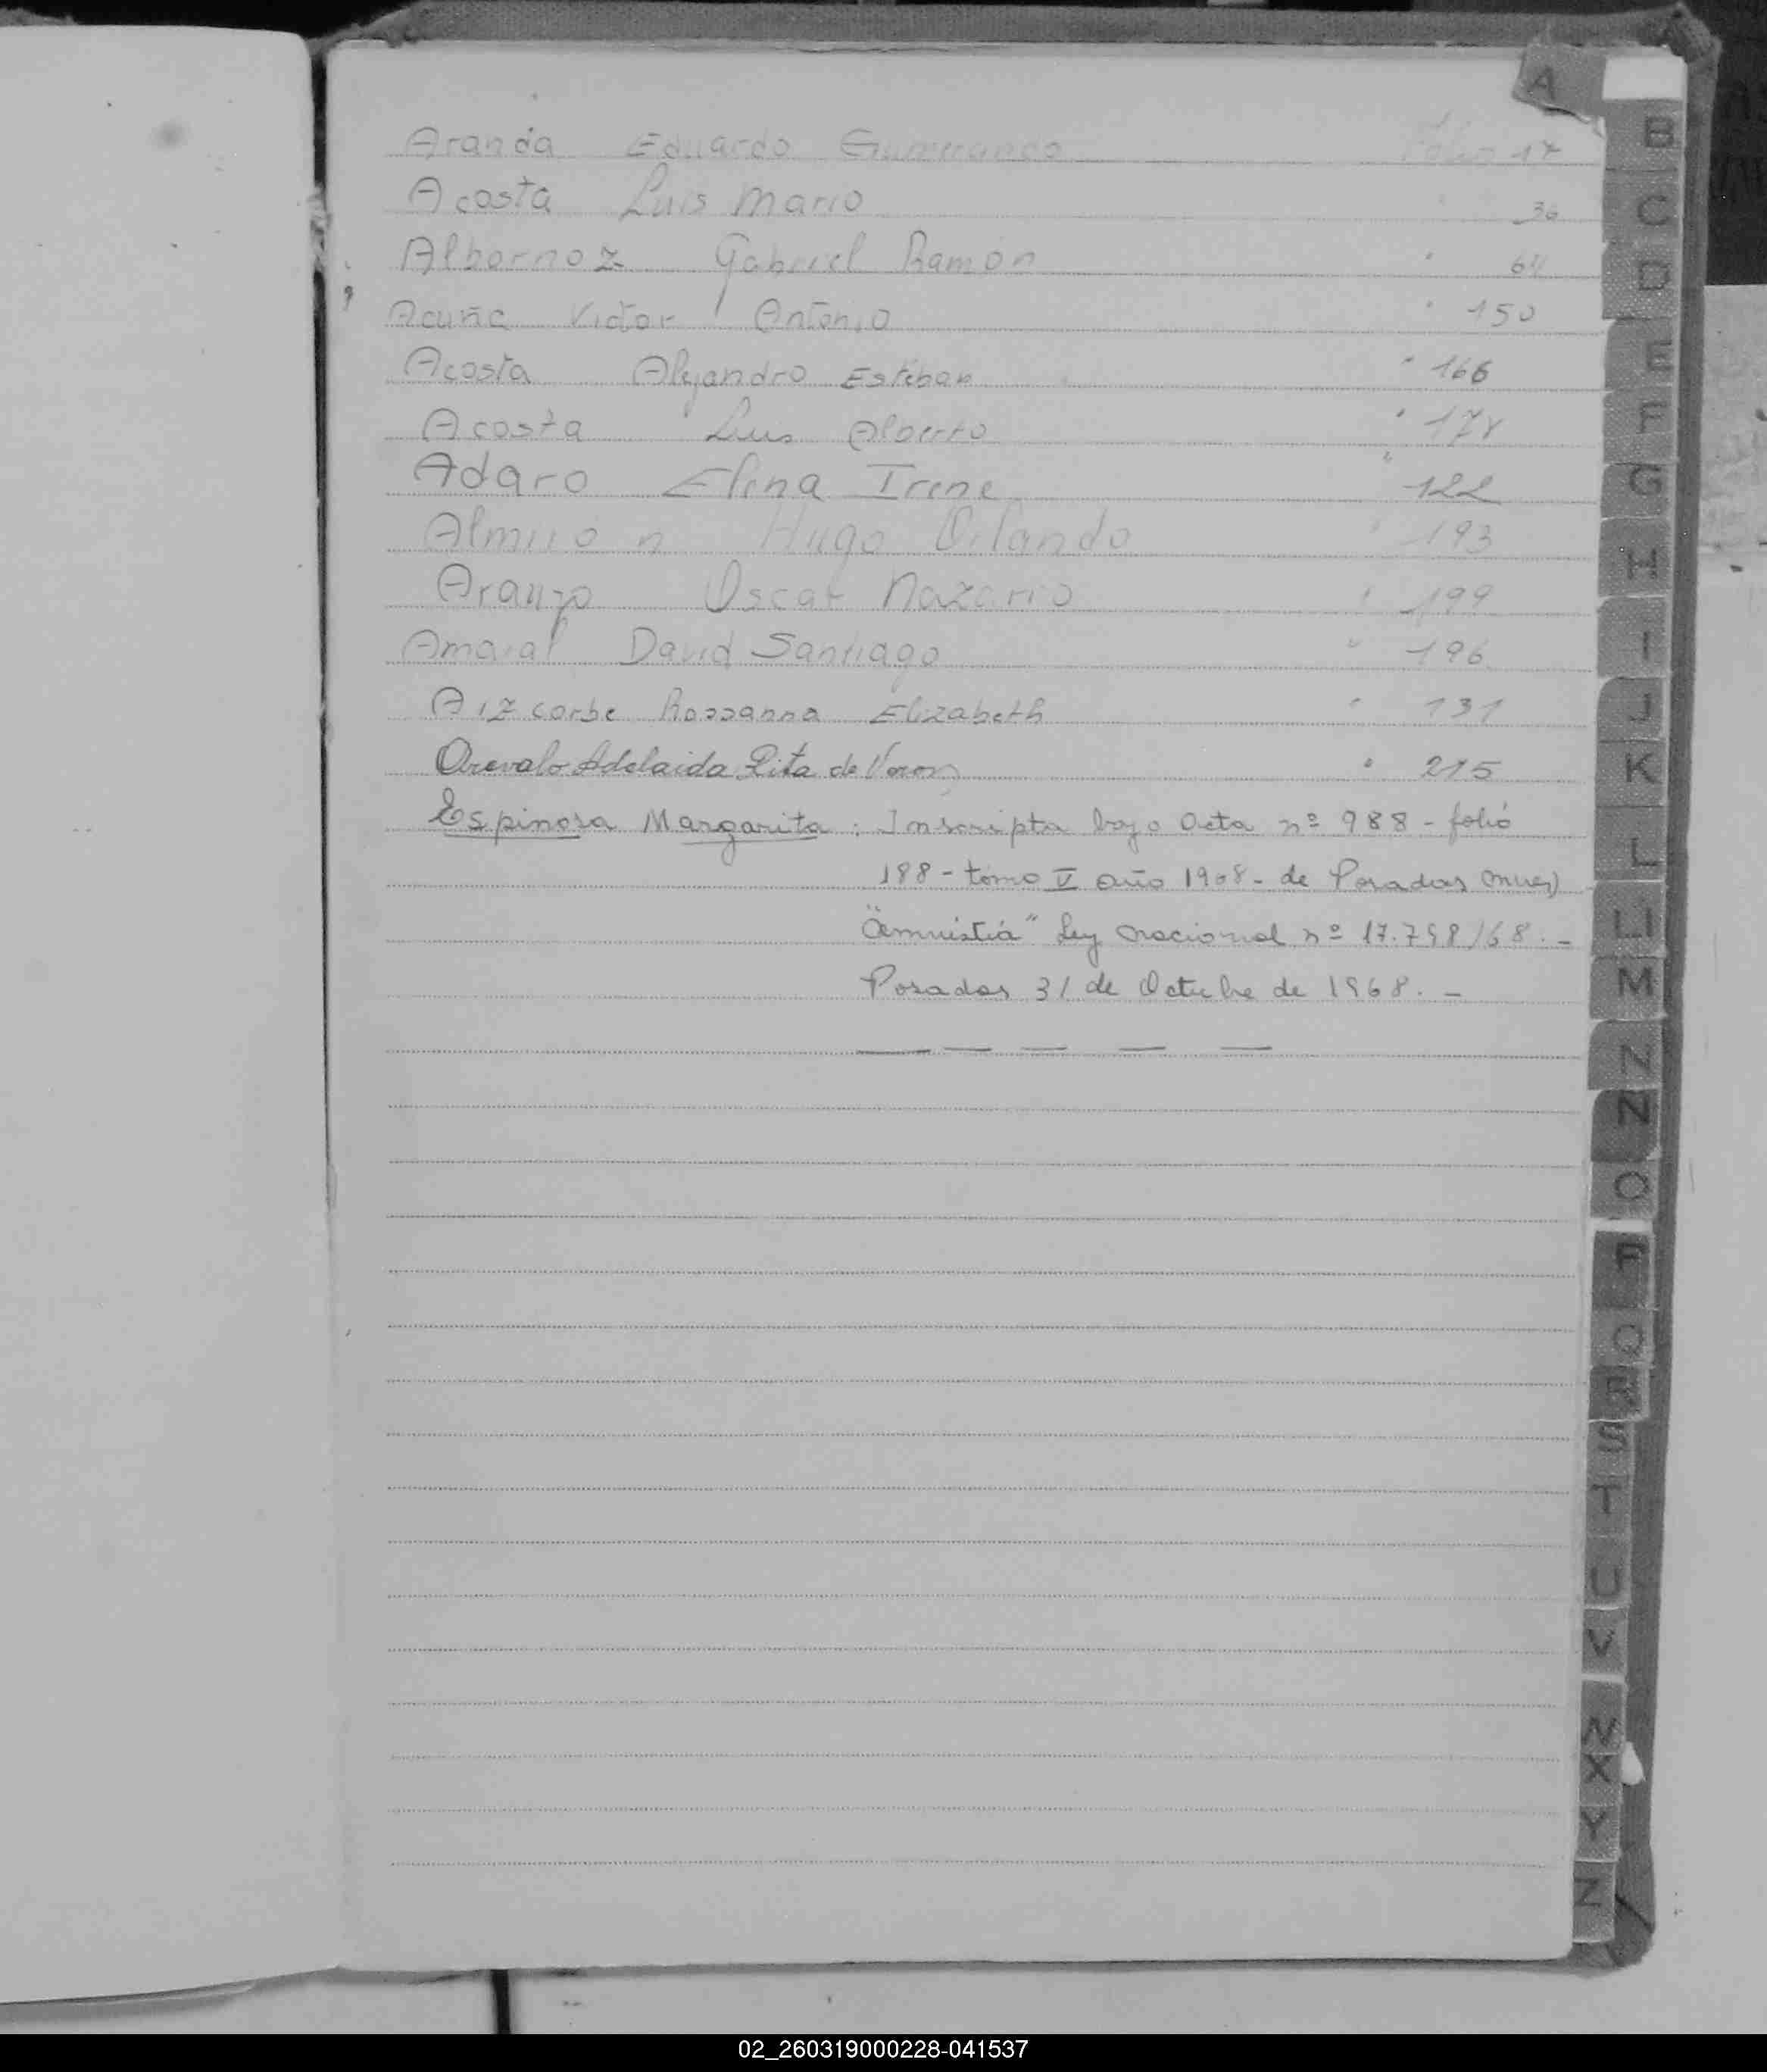 A
Aranda Eduardo Folio 17
Acosta Luis Mario 36
Albornoz Gabriel Ramón " 64
Acuña Victor Antonio " 150
Acosta Alejandro Esteban " 166
Acosta Luis Alberto " 178
Adaro Elena Irene " 122
Almiron Hugo Orlando " 193
Araujo Oscar Nazario " 199
Amaral David Santiago " 196
Aizcorbe Rossanna Elizabeth " 131
Arevalo Adelaida Rita de " 215
Espinosa Margarita : Inscripta bajo Acta nº 988 - folio
188 - tomo V año 1908 - de Posadas (Mnes)
"amnistia" Ley nacional nº 17.798/68. -
Posadas 31 de Octubre de 1968. -
B
C
D
E
F
G
H
I
J
K
L
Ll
M
N
N
O
P
Q
R
S
T
U
V
X
Y
Z
02_260319000228-041537